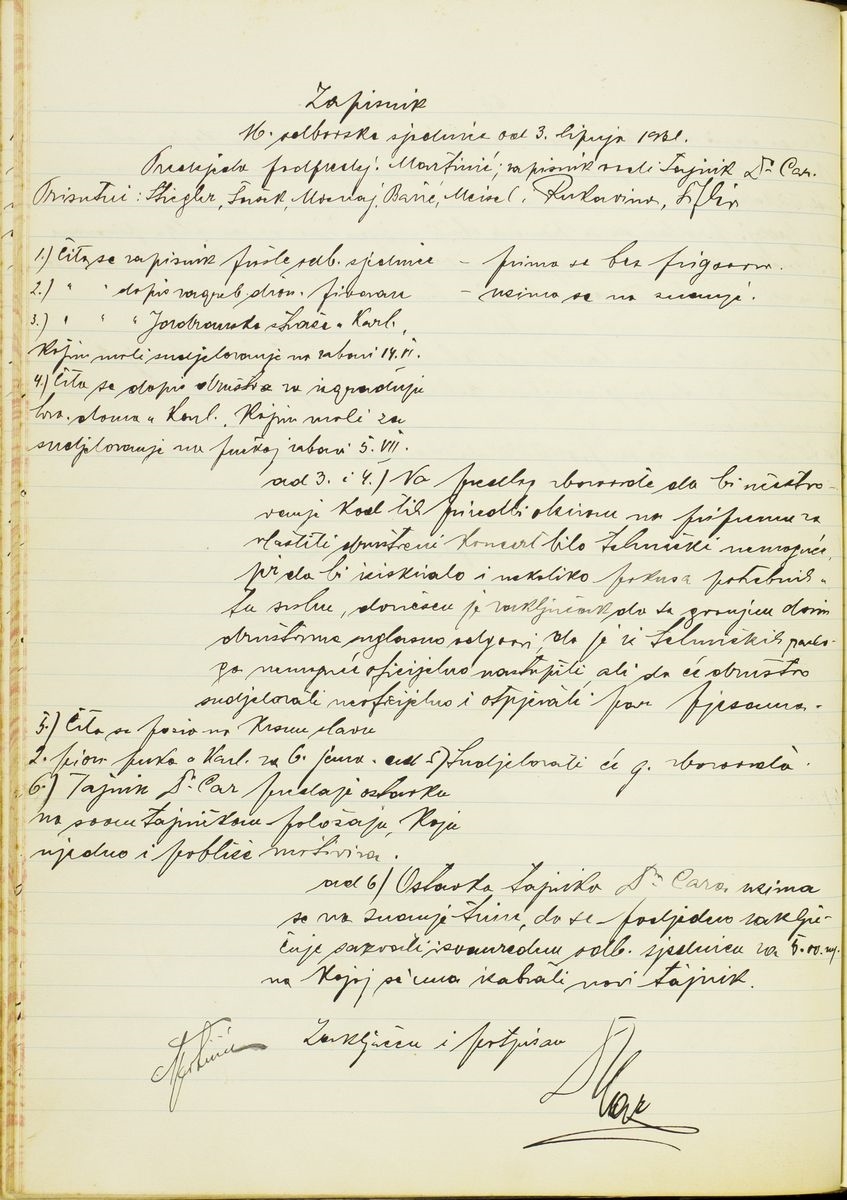 Zapisnik
16. odborske sjednice od 3. lipnja 1931.
Predsjeda podpredsj. Martinić; zapisnik vodi tajnik Dr. Car.
Prisutni: Stiegler, Meisel, Rukavina,
1.) Čita se zapisnik prošle odb. sjednice – prima se bez prigovora.
2.) " " dopis zagreb. – uzima se na znanje.
3.) " " " Jadranske straže u Karl.,
kojim moli sudjelovanje na zabavi 14. VI.
4.) Čita se dopis društva za izgradnju
doma u Karl., kojim moli za
sudjelovanje na pučkoj zabavi 5. VII.
ad 3. i 4.) Na predlog zborovođe da bi učestvo-
vanje kod tih priredbi obzirom na pripreme za
vlastiti društveni koncert bilo tehnički nemoguće,
pr da bi iziskivalo i nekoliko pokusa potrebnih u
tu svrhu, donešen je zaključak da se gornjim dvim
društvima uglasno odgovori, da je iz tehničkih razlo-
ga nemoguće oficijelno nastupiti ali da će društvo
sudjelovati neoficijelno i otpjevati par pjesama.
5.) Čita se poziv na Krsnu slavu
2. pion. puka u Karl. za 6. juna. ad 5) Sudjelovati će g. zborovođa.
6.) Tajnik Dr. Car predaje ostavku
na svom tajničkom položaju, koju
ujedno i pobliže motivira.
ad 6) Ostavka tajnika Dra Cara uzima
se na znanje time, da se podjedno zaklju-
čuje sazvati izvanrednu odb. sjednicu za 5. ov. mj.
na kojoj se ima izabrati novi tajnik.
Zaključeno i potpisan
Martinić
DrCar